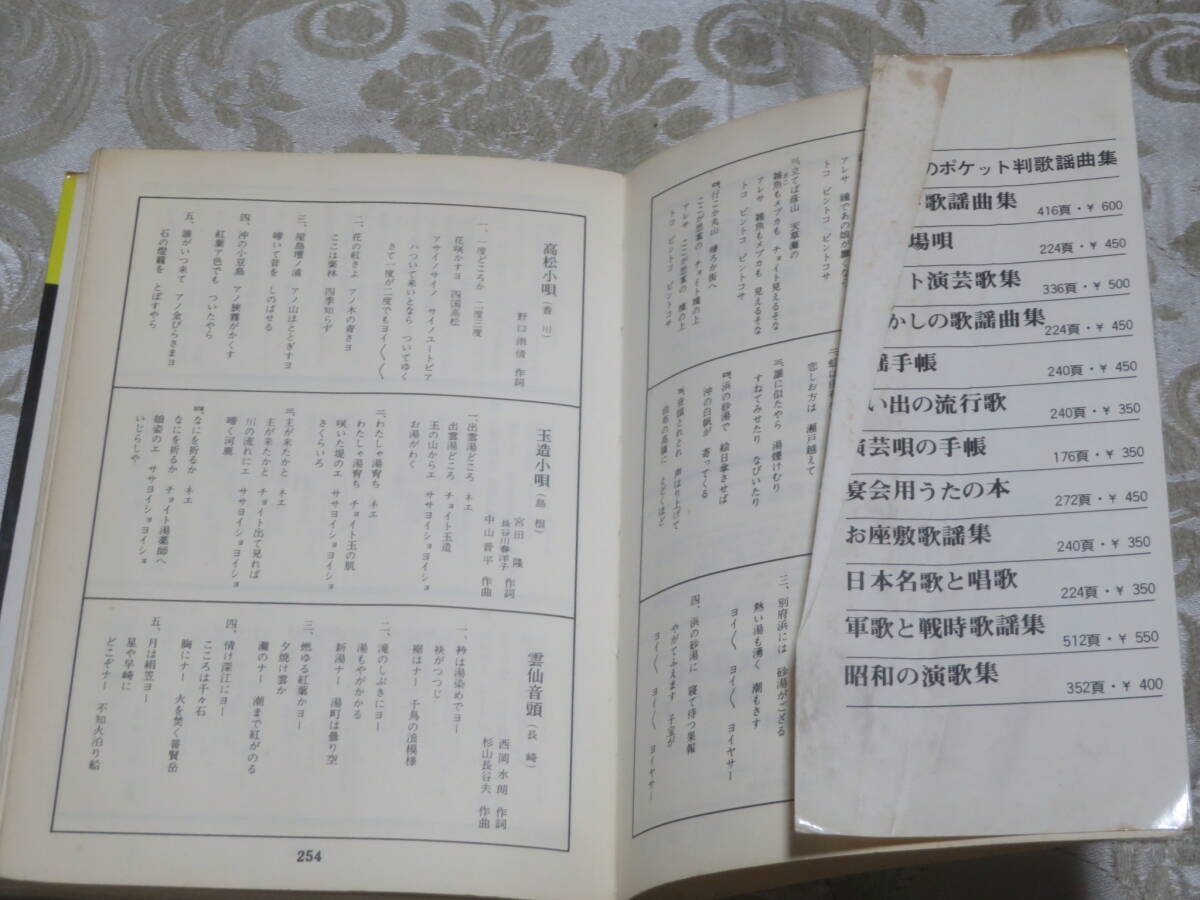 のポケット判歌謡曲集
歌謡曲集 416頁・￥600
場唄 224頁・￥450
ト演芸歌集 336頁・￥500
かしの歌謡曲集 224頁・￥450
謡手帳 240頁・￥450
い出の流行歌 240頁・￥350
演芸唄の手帳 176頁・￥350
宴会用うたの本 272頁・￥450
お座敷歌謡集 240頁・￥350
日本名歌と唱歌 224頁・￥350
軍歌と戦時歌謡集 512頁・￥550
昭和の演歌集 352頁・￥400
アレサ
トコ ピントコ ピントコサ
三、立てば彦山 天草灘の
雑魚もメブカも チョイト見えるそな
アレサ 雑魚もメブカも 見えるそな
トコ ピントコ ピントコサ
四、行こか丸山 帰ろか街へ
ここが思案の チョイト橋の上
アレサ ここが思案の 橋の上
トコ ピントコ ピントコサ
恋しお方は 瀬戸越えて
三、誰に似たやら 湯煙けむり
すねてみせたり なびいたり
四、浜の砂湯で 絵日傘させば
沖の白帆が 寄ってくる
五、音頭とれとれ 声はり上げて
三、別府浜には 砂湯がござる
熱い湯も湧く 潮もさす
ヨイ〳〵 ヨイ〳〵 ヨイヤサー
四、浜の砂湯に 寝て待つ果報
やがてふえます 子宝が
ヨイ〳〵 ヨイ〳〵 ヨイヤサー
高松小唄（香川）
野口雨情 作詞
一、一度どころか 二度三度
花咲かすヨ 四国高松
アサイノサイノ サイノエートピア
ハついて来いとなら ついてゆく
さて一度が二度でもヨイノ〳〵
二、花の紅さよ アノ木の青さヨ
ここは栗林 四季知らず
三、屋島壇ノ浦 アノ山はとぎすヨ
啼いて昔を しのばせる
四、沖の小豆島 アノ狭霧がかくす
紅葉ァ色でも ついたやら
五、誰がいつ来て アノ金ぴらさまヨ
石の燈籠を とぼすやら
玉造小唄（島根）
宮田隆
長谷川春洋子 作詞
中山晋平 作曲
一、出雲湯どころ ネエ
出雲湯どころ チョイト玉造
玉の山からエ ササヨイショヨイショ
お湯がわく
二、わたしゃ湯育ち ネエ
わたしゃ湯育ち チョイト玉の肌
咲いた堤のエ ササヨイショヨイショ
さくらいろ
三、主が来たかと ネエ
主が来たかと チョイト出て見れば
川の流れにエ ササヨイショヨイショ
啼く河鹿
四、なにを祈るか ネエ
なにを祈るか チョイト湯薬師へ
娘姿のエ ササヨイショヨイショ
いじらしや
雲仙音頭（長崎）
西岡水朗 作詞
杉山長谷夫 作曲
一、衿は湯染めでヨー
袂がつつじ
裾はナー 千鳥の浪模様
二、滝のしぶきにヨー
湯もやがかかる
新湯ナー 湯町は曇り空
三、燃ゆる紅葉かヨー
夕焼け雲か
灘のナー 潮まで紅がのる
四、情け深江にヨー
こころは千々石
胸にナー 火を焚く普賢岳
五、月は絹笠ヨー
星や早崎に
どこぞナー 不知火泊り船
254